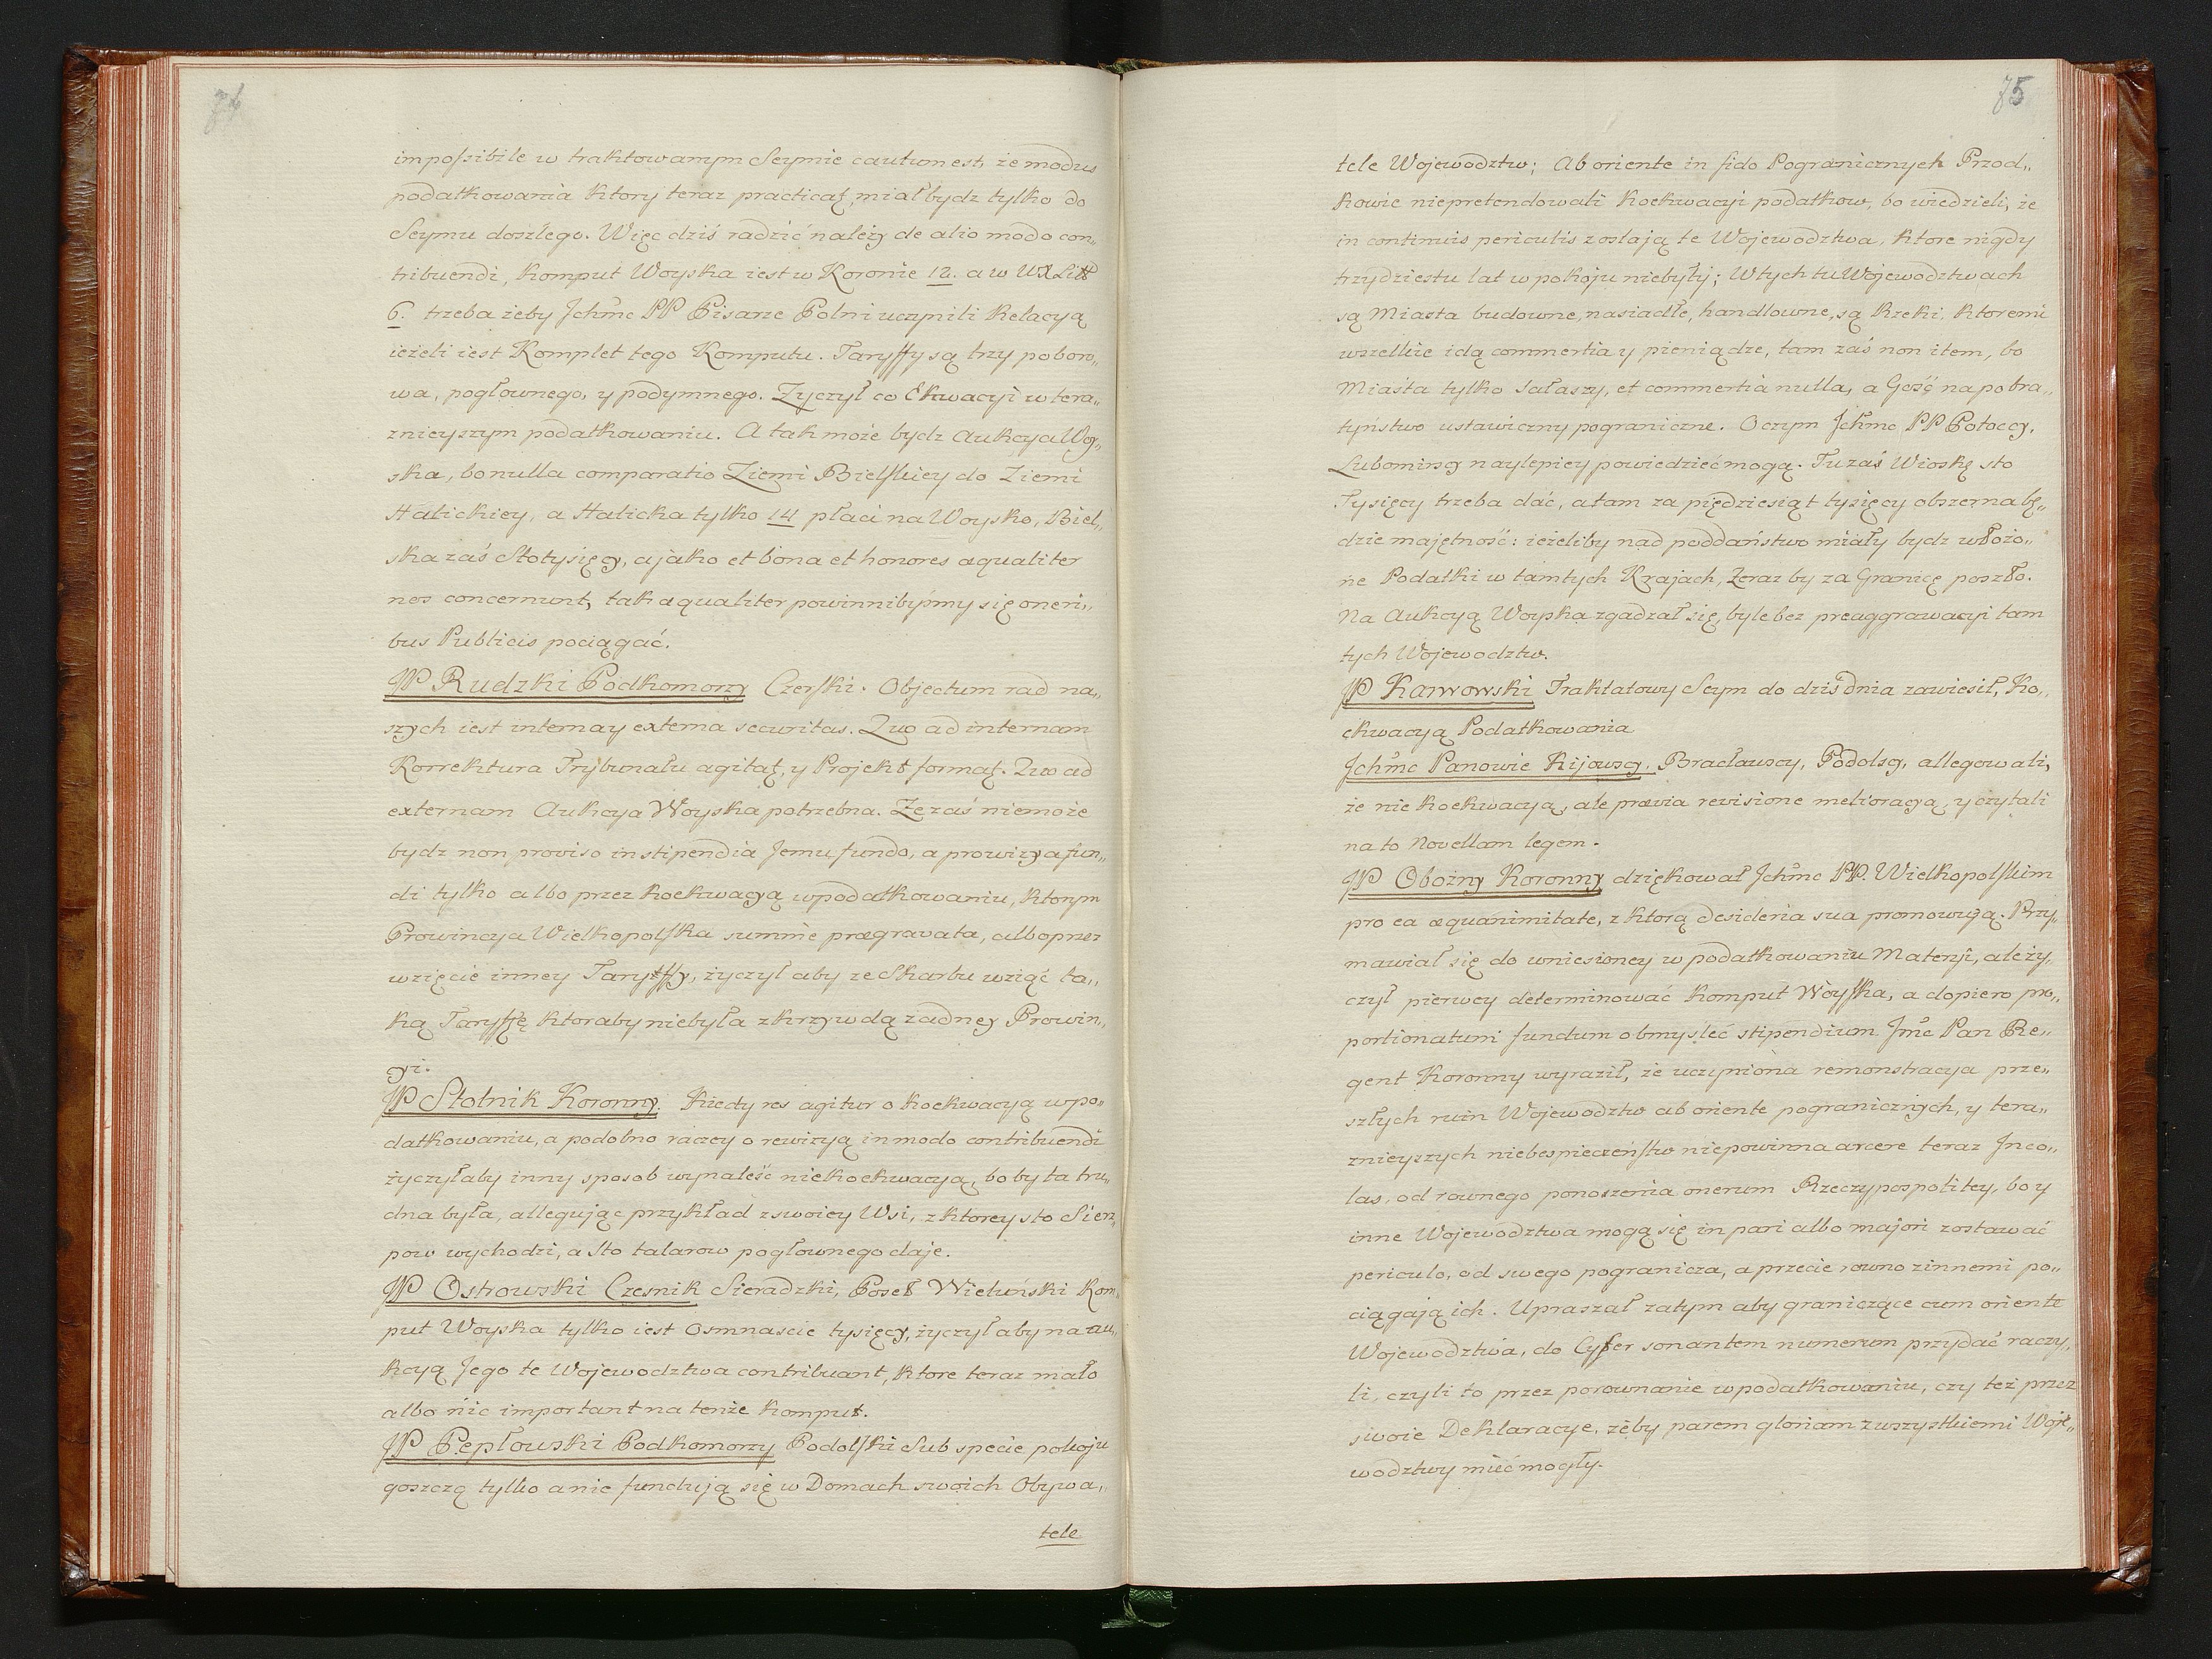 74
impossibile w traktowanym Seymie cautum est, że modus
podatkowania ktory teraz practicat, miał bydz tylko do
Seymu doszłego. Więc dziś radzić należy de alio modo con„
tribuendi, Komput Woyska iest w Koronie 12. a w WX Litt
6. trzeba żeby Jchmc PP Pisarze Polni uczynili Relacyą
ieżeli iest Komplet tego Komputu. Taryffy są trzy poboro„
wa, pogłownego, y podymnego. Zyczył co Ekwacyi w tera„
znieyszym podatkowaniu. A tak może bydz Aukcya Woy„
ska, bo nulla comparatio Ziemi Bielskiey do Ziemi
Halickiey, a Halicka tylko 14 płaci na Woysko, Biel„
ska zaś Stotysięcy, a jako et bona et honores æqualiter
nos concernunt, tak æqualiter powinnibyśmy się oneri„
bus Publicis pociągać.
JP Rudzki Podkomorzy Czerski. Objectum rad na„
szych iest interna y externa securitas. Quo ad internam
Korrektura Trybunału agitat, y Projekt format. Quo ad
externam Aukcya Woyska potrzebna. Ze zaś niemoże
bydz non proviso in stipendia Jemu fundo, a prowizya fun„
di tylko albo przez Koekwacyą w podatkowaniu, ktorym
Prowincya Wielkopolska summe prægravata, albo przez
wzięcie inney Taryffy, życzył aby ze Skarbu wziąć ta„
ką Taryffę ktoraby niebyła z krzywdą żadney Prowin„
cyi.
JP Stolnik Koronny. Kiedy res agitur o Koekwacyą w po„
datkowaniu, a podobno raczey o rewizyą in modo contribuendi
życzył aby inny sposob wynaleść nie Koekwacyą, bo by ta tru„
dna była, allegując przykład z swoiey Wsi, z ktorey sto Sier„
pow wychodzi, a sto talarow pogłownego daje.
JP Ostrowski Czesnik Sieradzki, Poseł Wieluński Kom„
put Woyska tylko iest Osmnascie tysięcy, życzył aby na au„
kcyą Jego te Wojewodztwa contribuant, ktore teraz mało
albo nic important na tenże Komput.
JP Pepłowski Podkomorzy Podolski Sub specie pokoju
goszczą tylko a nie fundują się w Domach swoich Obywa„
tele
75
tele Wojewodztw; Ab oriente in sido Pogranicznych Przod„
kowie niepretendowali Koekwacyi podatkow, bo wiedzieli, że
in continuis periculis zostają te Wojewodztwa, ktore nigdy
trzydziestu lat w pokoju niebyły; W tych tu Wojewodztwach
są Miasta budowne, nasiadłe, handlowne, są Rzeki, ktoremi
wszelkie idą commertia y pieniądze, tam zaś non item, bo
Miasta tylko Sałaszy, et commertia nulla, a Gość na pobra„
tyństwo ustawiczny pograniczne. O czym Jchmc PP Potoccy,
Lubomirscy naylepiey powiedzieć mogą. Tu zaś Wioskę sto
Tysięcy trzeba dać, a tam za pięćdziesiąt tysięcy obszerna bę„
dzie majętność: ieżeliby nad poddaństwo miały bydz włożo„
ne Podatki w tamtych Krajach, Zeraz by za Granicę poszło.
Na Aukcyą Woyska zgadzał się, byle bez preaggrawacyi tam
tych Wojewodztw.
JP Karwowski Traktatowy Seym do dziś dnia zawiesił, Ko„
ekwacyą Podatkowania
Jchmc Panowie Kijowscy, Bracławscy, Podolscy, allegowali,
że nie Koekwacyą, ale prævia revisione melioracyą, y czytali
na to Novellam legem.
JP Obożny Koronny dziękował Jchmc PP. Wielkopolskim
pro ea æquanimitate, z ktorą desideria sua promowują. Przy„
mawiał się do wniesioney w podatkowaniu Materyi, ale ży„
czył pierwey determinować Komput Woyska, a dopiero pro„
portionatum fundum obmysleć stipendium Jmć Pan Re„
gent Koronny wyraził, że uczyniona remonstracya prze„
szłych ruin Wojewodztw ab oriente pogranicznych, y tera„
znieyszych niebespieczeństw niepowinna arcere teraz Inco„
las, od rownego ponoszenia onerum Rzeczypospolitey, bo y
inne Wojewodztwa mogą się in pari albo majori zostawać
periculo, od swego pogranicza, a przecie rowno z innemi po„
ciągają ich. Upraszał zatym aby graniczące cum oriente
Wojewodztwa, do Cyfer sonantem numerum przydać raczy„
li, czyli to przez porownanie w podatkowaniu, czy też przez
swoie Deklaracye, żeby parem gloriam z wszystkiemi Woje„
wodztwy mieć mogły.